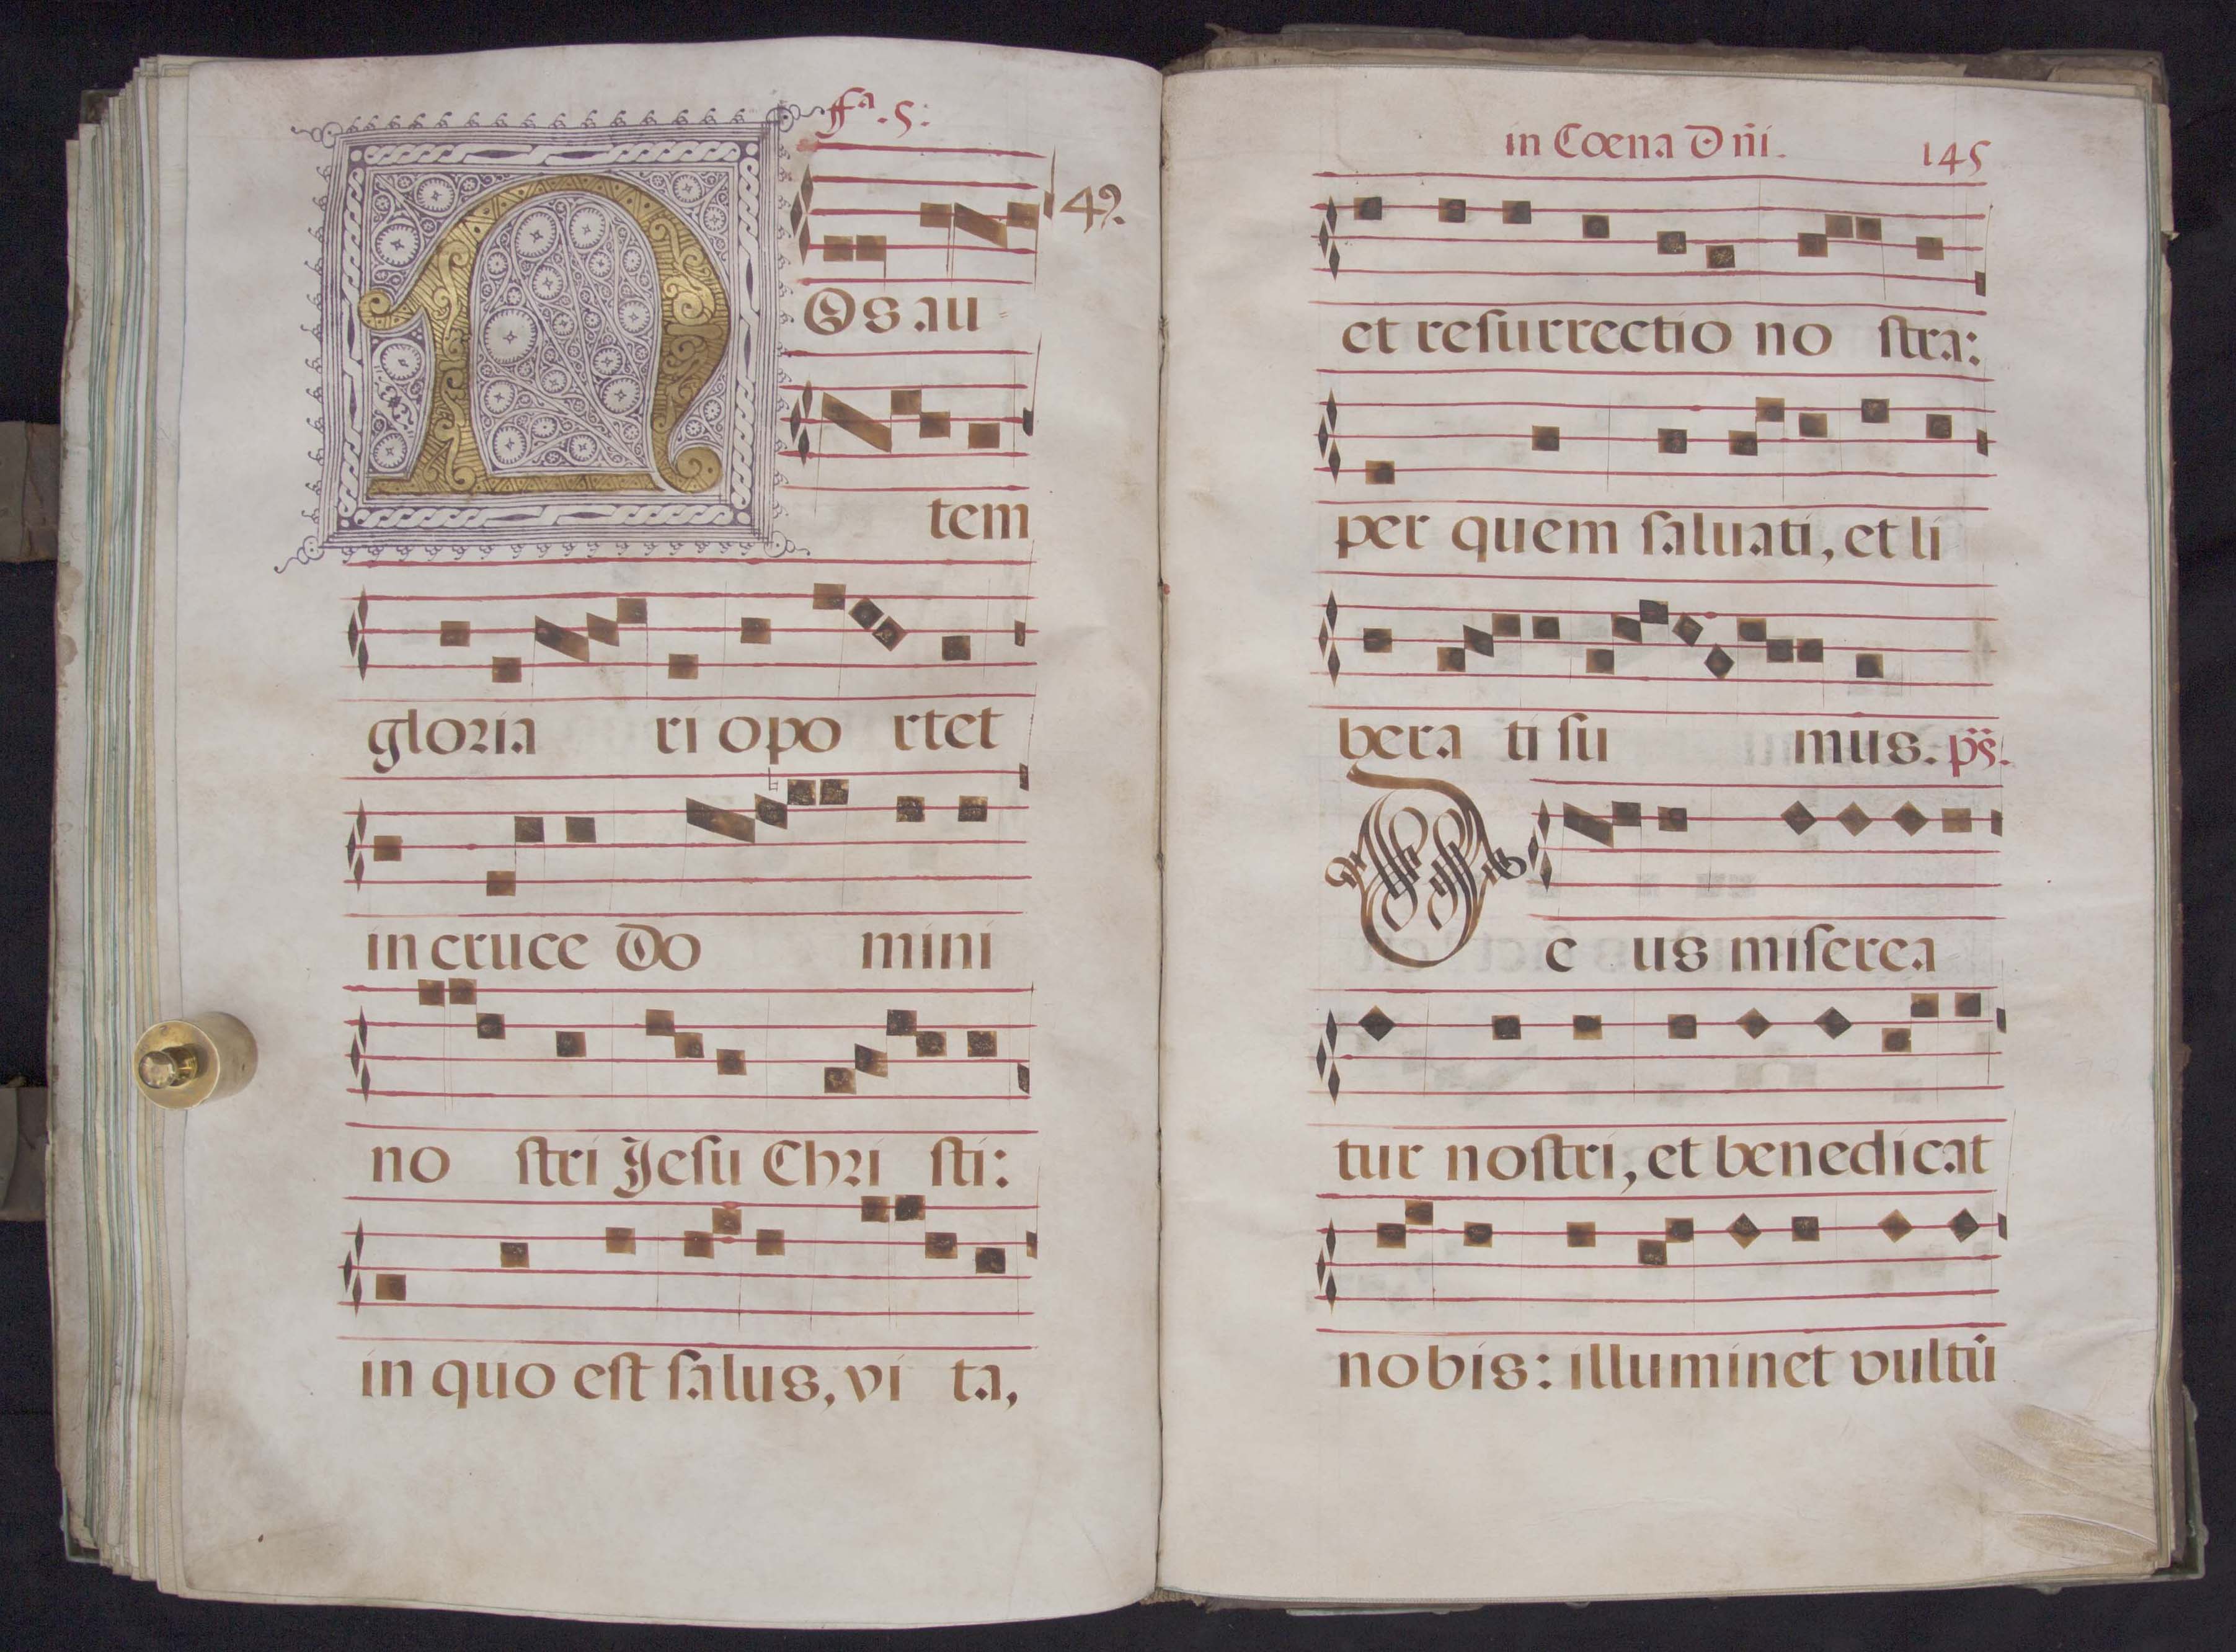 fª. 5:
4?.
NOs au=
tem
gloria ri opo rtet
in cruce Do mini
no ſtri Jeſu Chri ſti:
in quo eſt ſalus, vi ta,
in Coena Dñi. 145
et reſurrectio no ſtra:
per quem ſaluati, et li
bera ti ſu mus. ps̈.
De us miſerea
tur noſtri, et benedicat
nobis: illuminet vultũ